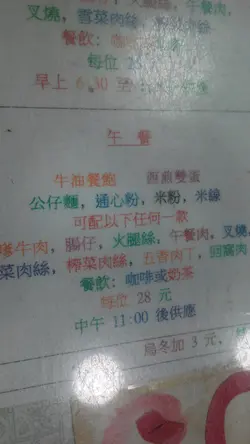 火腿絲, 午餐肉,
叉燒, 雪菜肉絲,
餐飲: 咖啡
每位 2
早上 6:30 至
午 餐
牛油餐飽 西煎雙蛋
公仔麵, 通心粉, 米粉, 米絲
可配以下任何一款
嗲牛肉, 腸仔, 火腿絲, 午餐肉, 叉
菜肉絲, 榨菜肉絲, 五香肉丁, 回窩肉
餐飲: 咖啡或奶茶
每位 28 元
中午 11:00 後供應
烏冬加 3 元,